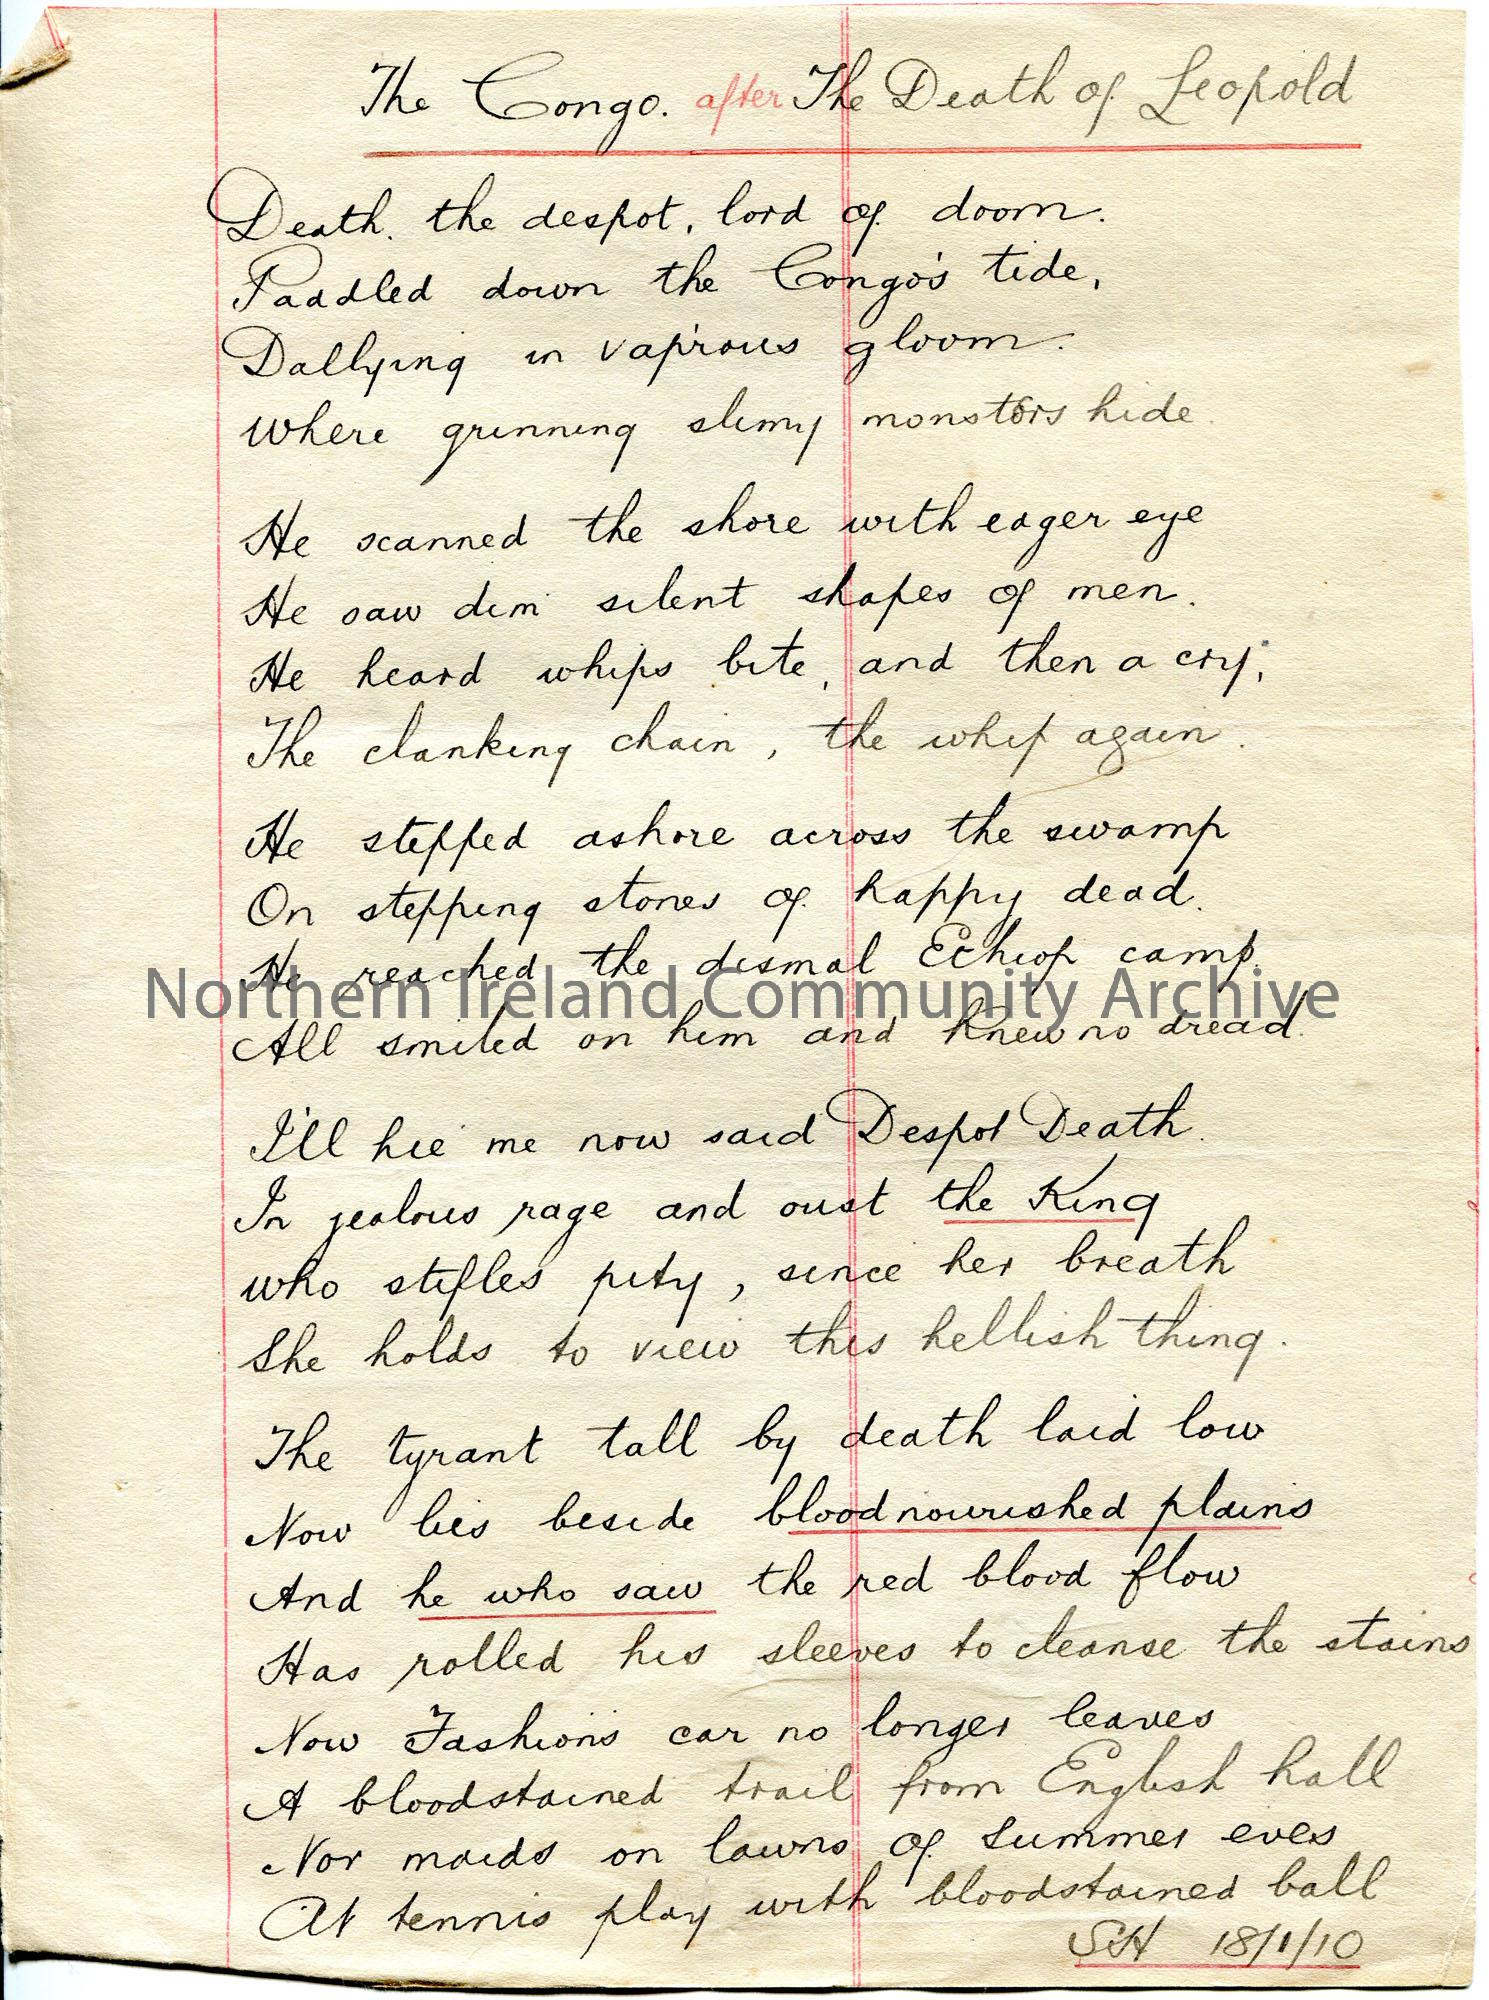 The Congo. after The Death of Leopold
Death, the despot, lord of doom.
Paddled down the Congo's tide,
Dallying in vap'rous gloom.
Where grinning slimy monsters hide.
He scanned the shore with eager eye
He saw dim silent shapes of men.
He heard whips bite, and then a cry;
The clanking chain, the whip again.
He stepped ashore across the swamp
On stepping stones of happy dead.
He reached the dismal Ethiop camp.
Northern Ireland Community Archive
All smiled on him and knew no dread.
I'll hie me now said Despot Death.
In jealous rage and oust the King
who stifles pity, since her breath
She holds to view this hellish thing.
The tyrant tall by death laid low
Now lies beside bloodnourished plains
And he who saw the red blood flow
Has rolled his sleeves to cleanse the stains
Now Fashion's car no longer leaves
A bloodstained trail from English hall
Nor maids on lawns of summer eves
At tennis play with bloodstained ball
SH 18/1/10